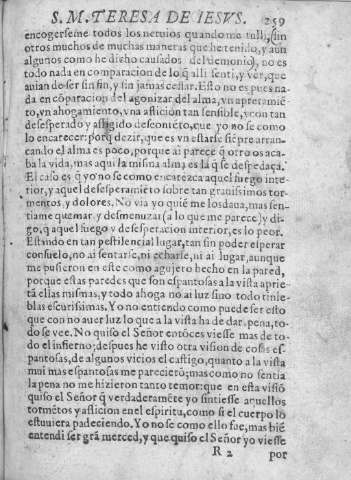 S. M. TERESA DE IESVS. 259
encogerseme todos los neruios quando me tulli, sin
otros muchos de muchas maneras que he tenido, y aun
algunos como he dicho causados del demonio), no es
todo nada en comparacion de lo q̃ alli senti, y ver, que
auian de ser sin fin, y sin jamas cessar. Esto no es pues na
da en cõparacion del agonizar del alma, vn apretamiẽ
to, vn ahogamiento, vna aflicion tan sensible, y con tan
desesperado y afligido descontẽto, que yo no se como
lo encarecer: porq̃ dezir, que es vn estarse siẽpre arran-
cando el alma es poco, porque ai parece q̃ otro os aca-
ba la vida, mas aqui la misma alma es la q̃ se despedaça.
El caso es q̃ yo no se como encarezca aquel fuego inte-
rior, y aquel desesperamiẽto sobre tan grauissimos tor-
mentos, y dolores. No via yo quiẽ me los daua, mas sen-
tiame quemar, y desmenuzar (a lo que me parece) y di-
go, q̃ aquel fuego y desesperacion interior, es lo peor.
Estando en tan pestilencial lugar, tan sin poder esperar
consuelo, no ai sentarse, ni echarse, ni ai lugar, aunque
me pusieron en este como agujero hecho en la pared,
porque estas paredes que son espantosas a la vista aprie-
tã ellas mismas, y todo ahoga no ai luz sino todo tinie-
blas escurissimas. Yo no entiendo como puede ser esto
que con no auer luz lo que a la vista ha de dar, pena, to-
do se vee. No quiso el Señor entõces viesse mas de to-
do el infierno; despues he visto otra vision de cosas es-
pantosas, de algunos vicios el castigo, quanto a la vista
mui mas espantosas me parecierõ; mas como no sentia
la pena no me hizieron tanto temor: que en esta visiõ
quiso el Señor q̃ verdaderamẽte yo sintiesse aquellos
tormẽtos y aflicion en el espiritu, como si el cuerpo lo
estuuiera padeciendo. Yo no se como ello fue, mas biẽ
entendi ser grã merced, y que quiso el Señor yo viesse
R 2 por